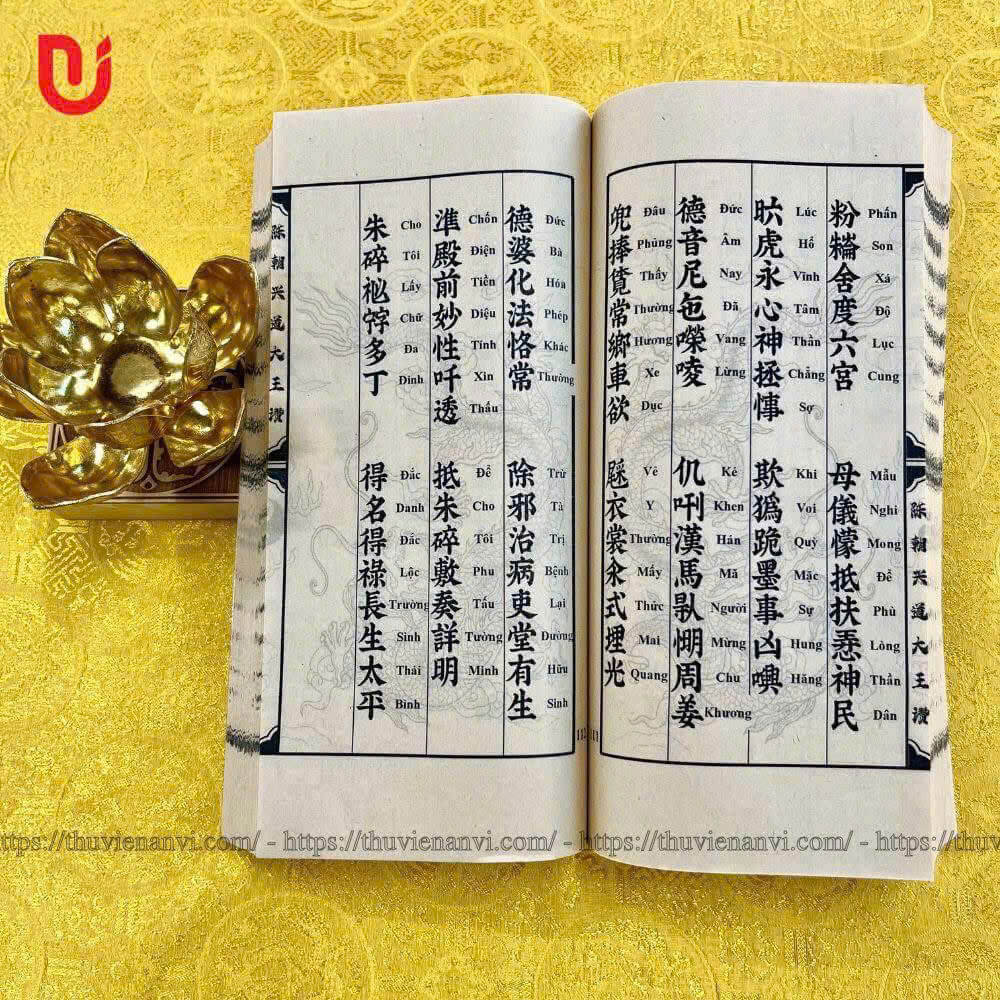 粉舍度六宮
Phấn Son Xá Độ Lục Cung
母儀懞抵扶神民
Mẫu Nghi Mong Để Phù Lòng Thần Dân
虎永心神拯
Lúc Hổ Vĩnh Tâm Thần Chẳng Sợ
欺跪墨事凶
Khi Voi Quỳ Mặc Sự Hung Hăng
德音尼㐌
Đức Âm Nay Đã Vang Lừng
仉漢馬周姜
Kẻ Khen Hán Mã Người Mừng Chu Khương
兜捧覓常鄉車欲
Đâu Phủng Thấy Thường Hương Xe Dục
衣裳式埋光
Vê Y Thường Mấy Thức Mai Quang
陈朝兴道大王讚
111
德婆化法恪常
Đức Bà Hóa Phép Khác Thường
除邪治病吏堂有生
Trừ Tà Trị Bệnh Lại Đường Hữu Sinh
準殿前妙性吀透
Chốn Điện Tiền Diệu Tính Xin Thấu
抵朱碎敷奏詳明
Để Cho Tôi Phu Tấu Tường Minh
朱碎多丁
Cho Tôi Lấy Chữ Đa Đinh
得名得祿長生太平
Đắc Danh Đắc Lộc Trường Sinh Thái Bình
陈朝兴道大王讚
112
https://thuvienanvi.com/ - https://thuvienanvi.com/ - https://thuvienanvi.com/ - https://thuvienanvi.com/